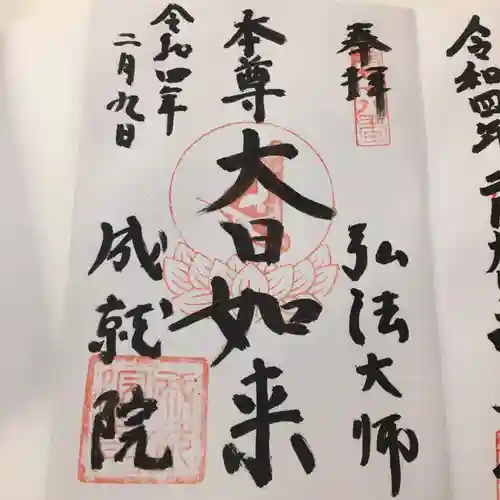 奉拝
弘法大師
本尊
大日如来
令和四年
二月九日
成就院
令和四年 二月九日